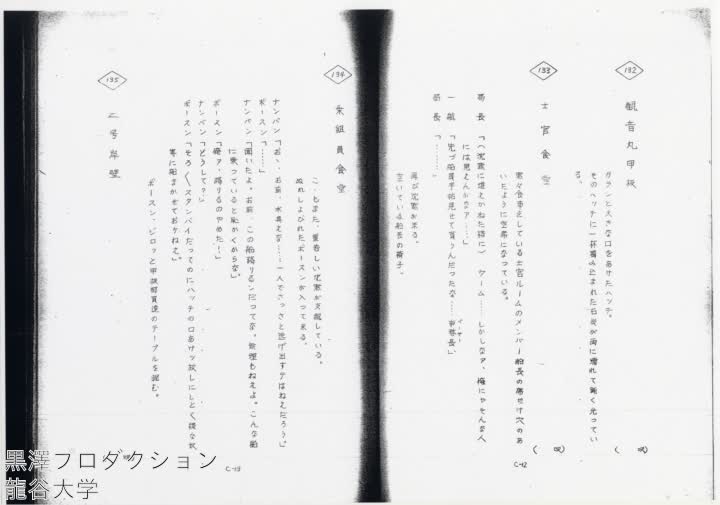 132
観音丸甲板
ガランと大きな口をあけたハッチ。
そのハッチに一杯積み込まれた石炭が雨に濡れて鈍く光っている。
133
士官食堂
黙々食事をしている士官ルームのメンバー船長の席だけ穴のあ
いたように空席になっている。
局長「(沈黙に堪えかねた様に) ウーム……しかしなァ、俺にやそんな人
には見えんがなァ……」
一航「先づ船員手帖見せて貰うんだったな……事務長」
局長「……」
再び沈黙が来る。
空いている船長の椅子。
C-12
134
乗組員食堂
こゝもまた、重苦しい沈黙が支配している。
ぬれしょびれたボースンが入って来る。
ナンバン「おゝ、お前、水臭えな……一人でさっさと逃げ出すテはねえだろう」
ボースン「……」
ナンバン「聞いたよ。お前、この船降りるンだってな、無理もねえよ。こんな船
に乗っていると恥かくからな」
ボースン「俺ァ、降りるのやめた!」
ナンバン「どうして?」
ボースン「そろ〱スタンバイだってのにハッチの口あけッ放しにしとく様な奴
等に船まかせておけねえ」
ボースン、ジロッと甲板部員達のテーブルを睨む。
135
二号岸壁
C-13
黒澤プロダクション
龍谷大学